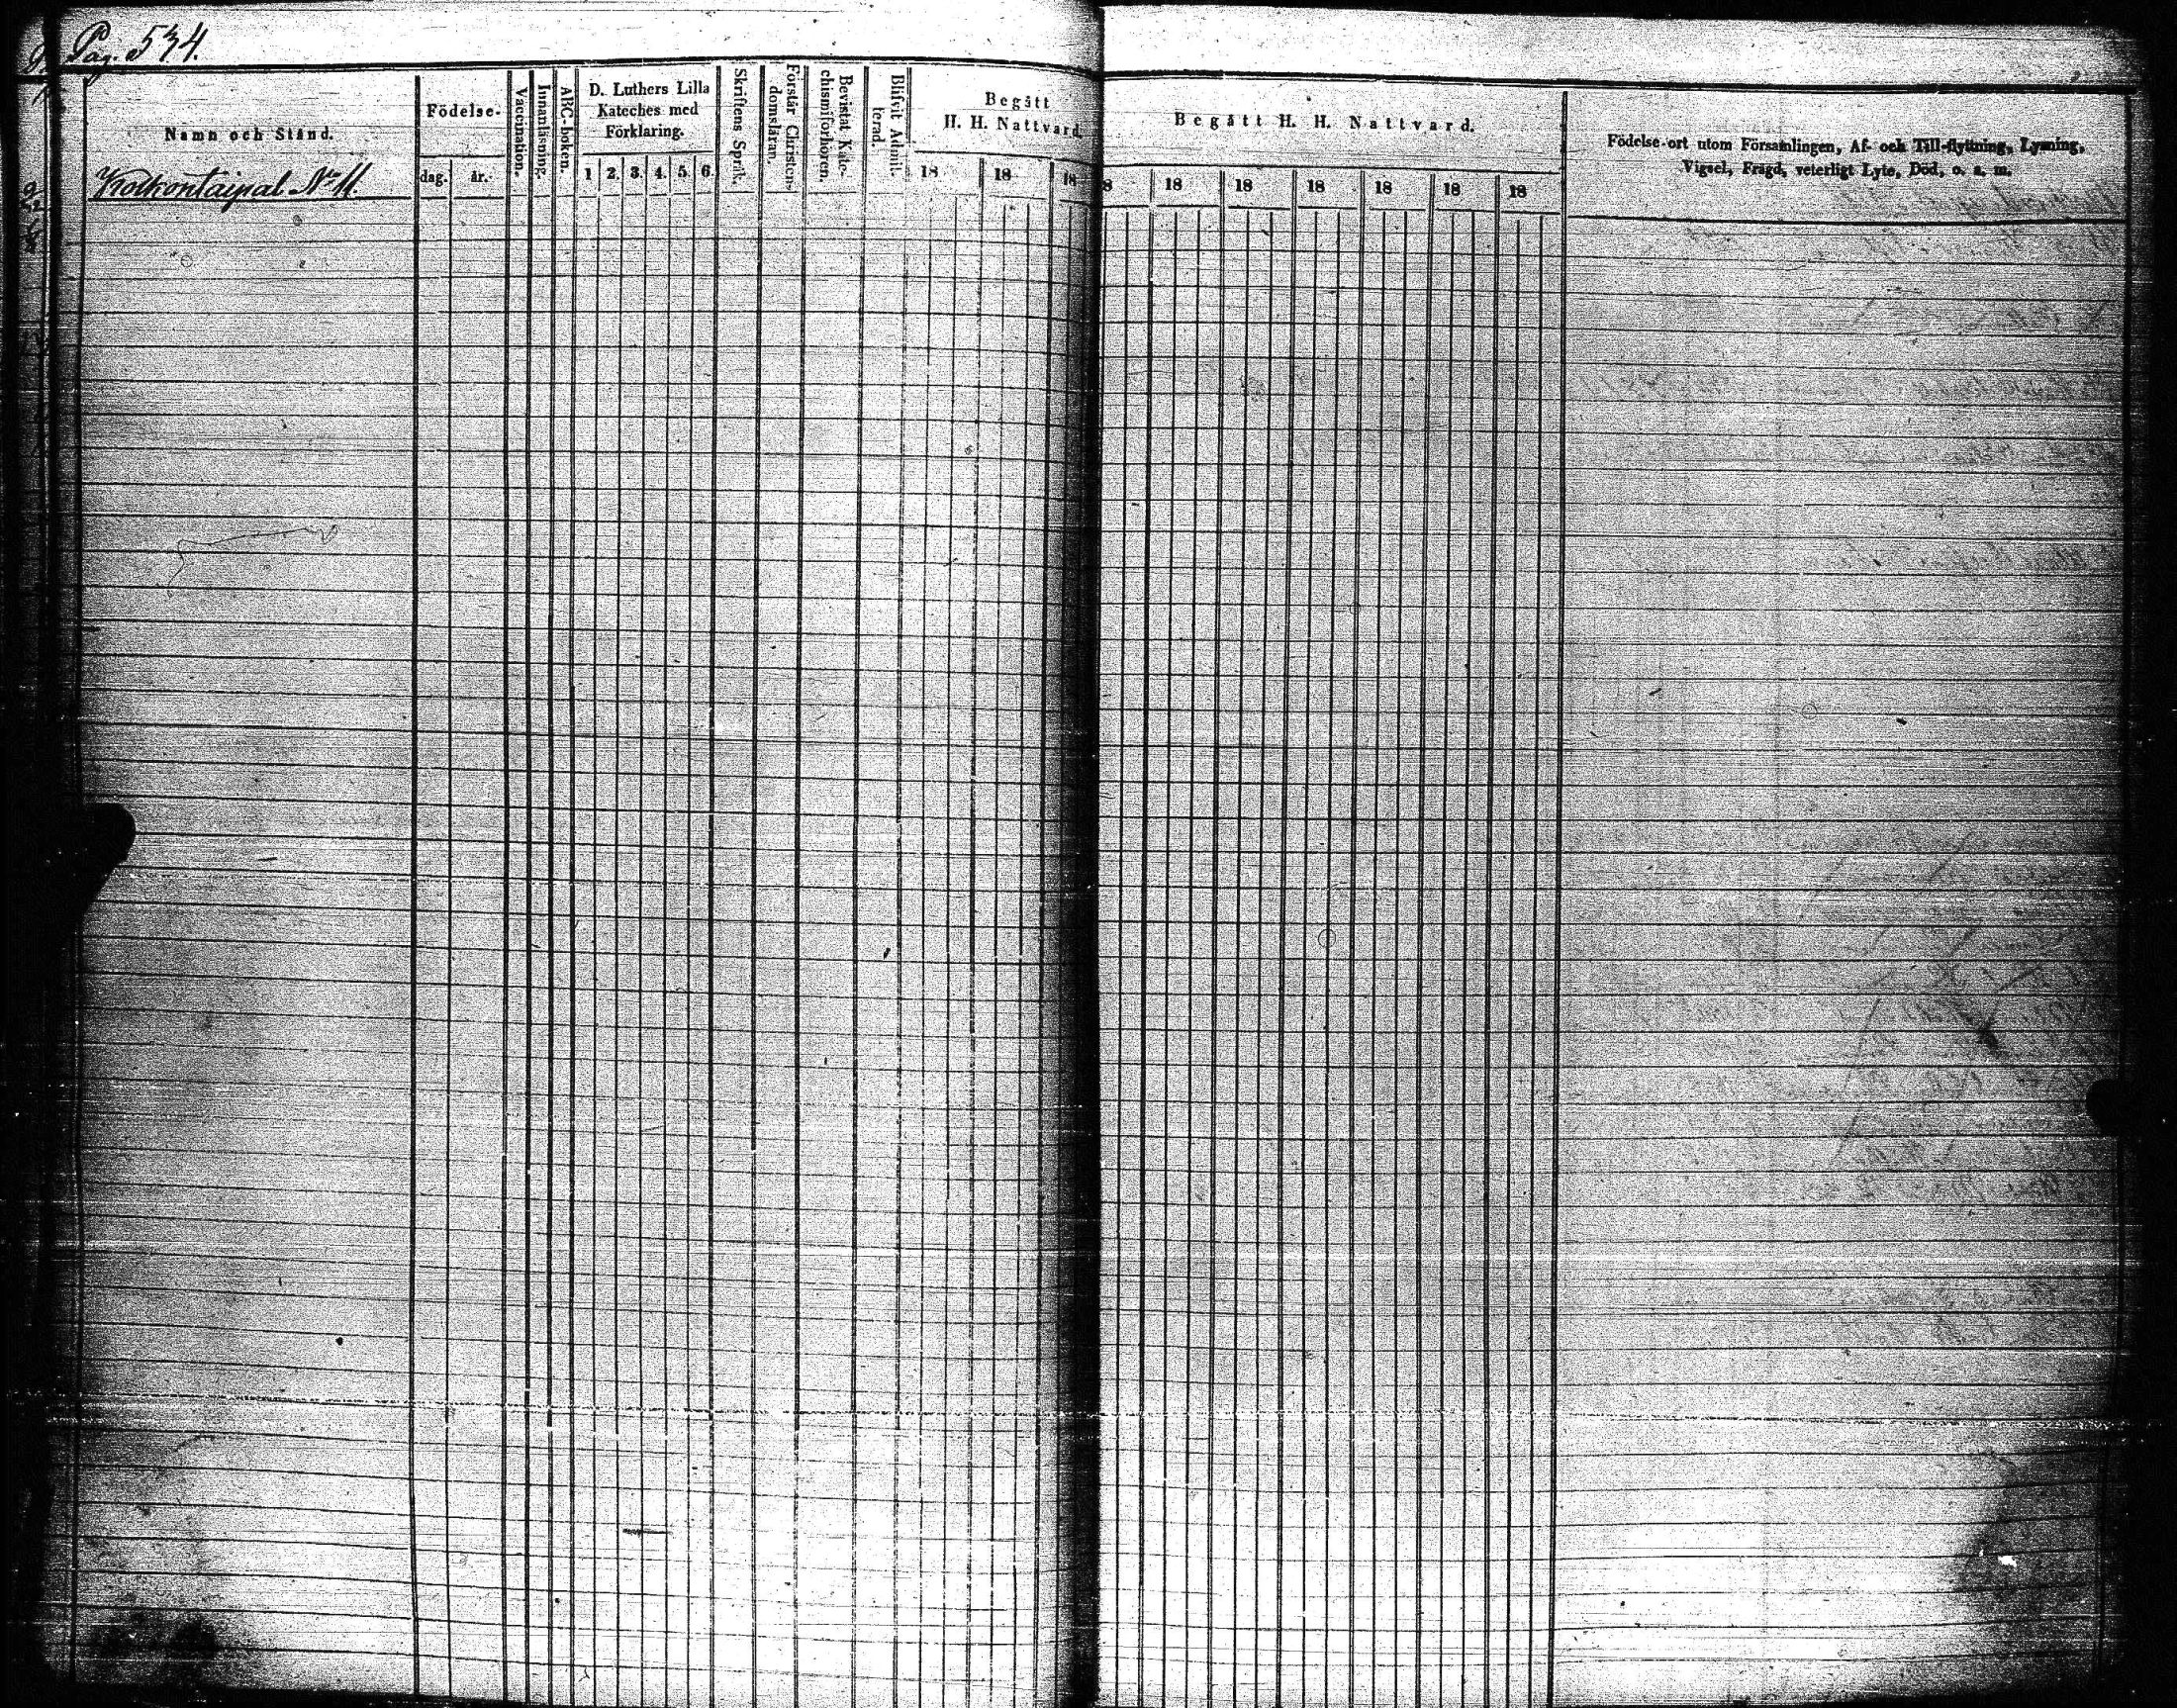 Pag. 534.
Namn och Stånd.
Födelse-
dag. år.
Vaccination.
Innanläsning.
ABC-boken.
D. Luthers Lilla
Kateches med
Förklaring.
1 2. 3. 4. 5. 6.
Skriftens Språk.
Förstår Christen-
domsläran.
Bevistat Kate-
chismiförhören.
Blifvit Admit-
terad.
Begått
H. H. Nattvard.
18 18 18
Begått H. H. Nattvard.
8 18 18 18 18 18 18
Födelse-ort utom Församlingen, Af- och Till-flyttning, Lysning,
Vigsel, Frägd, veterligt Lyte, Död, o. s. m.
Kolkontaipal No 11.